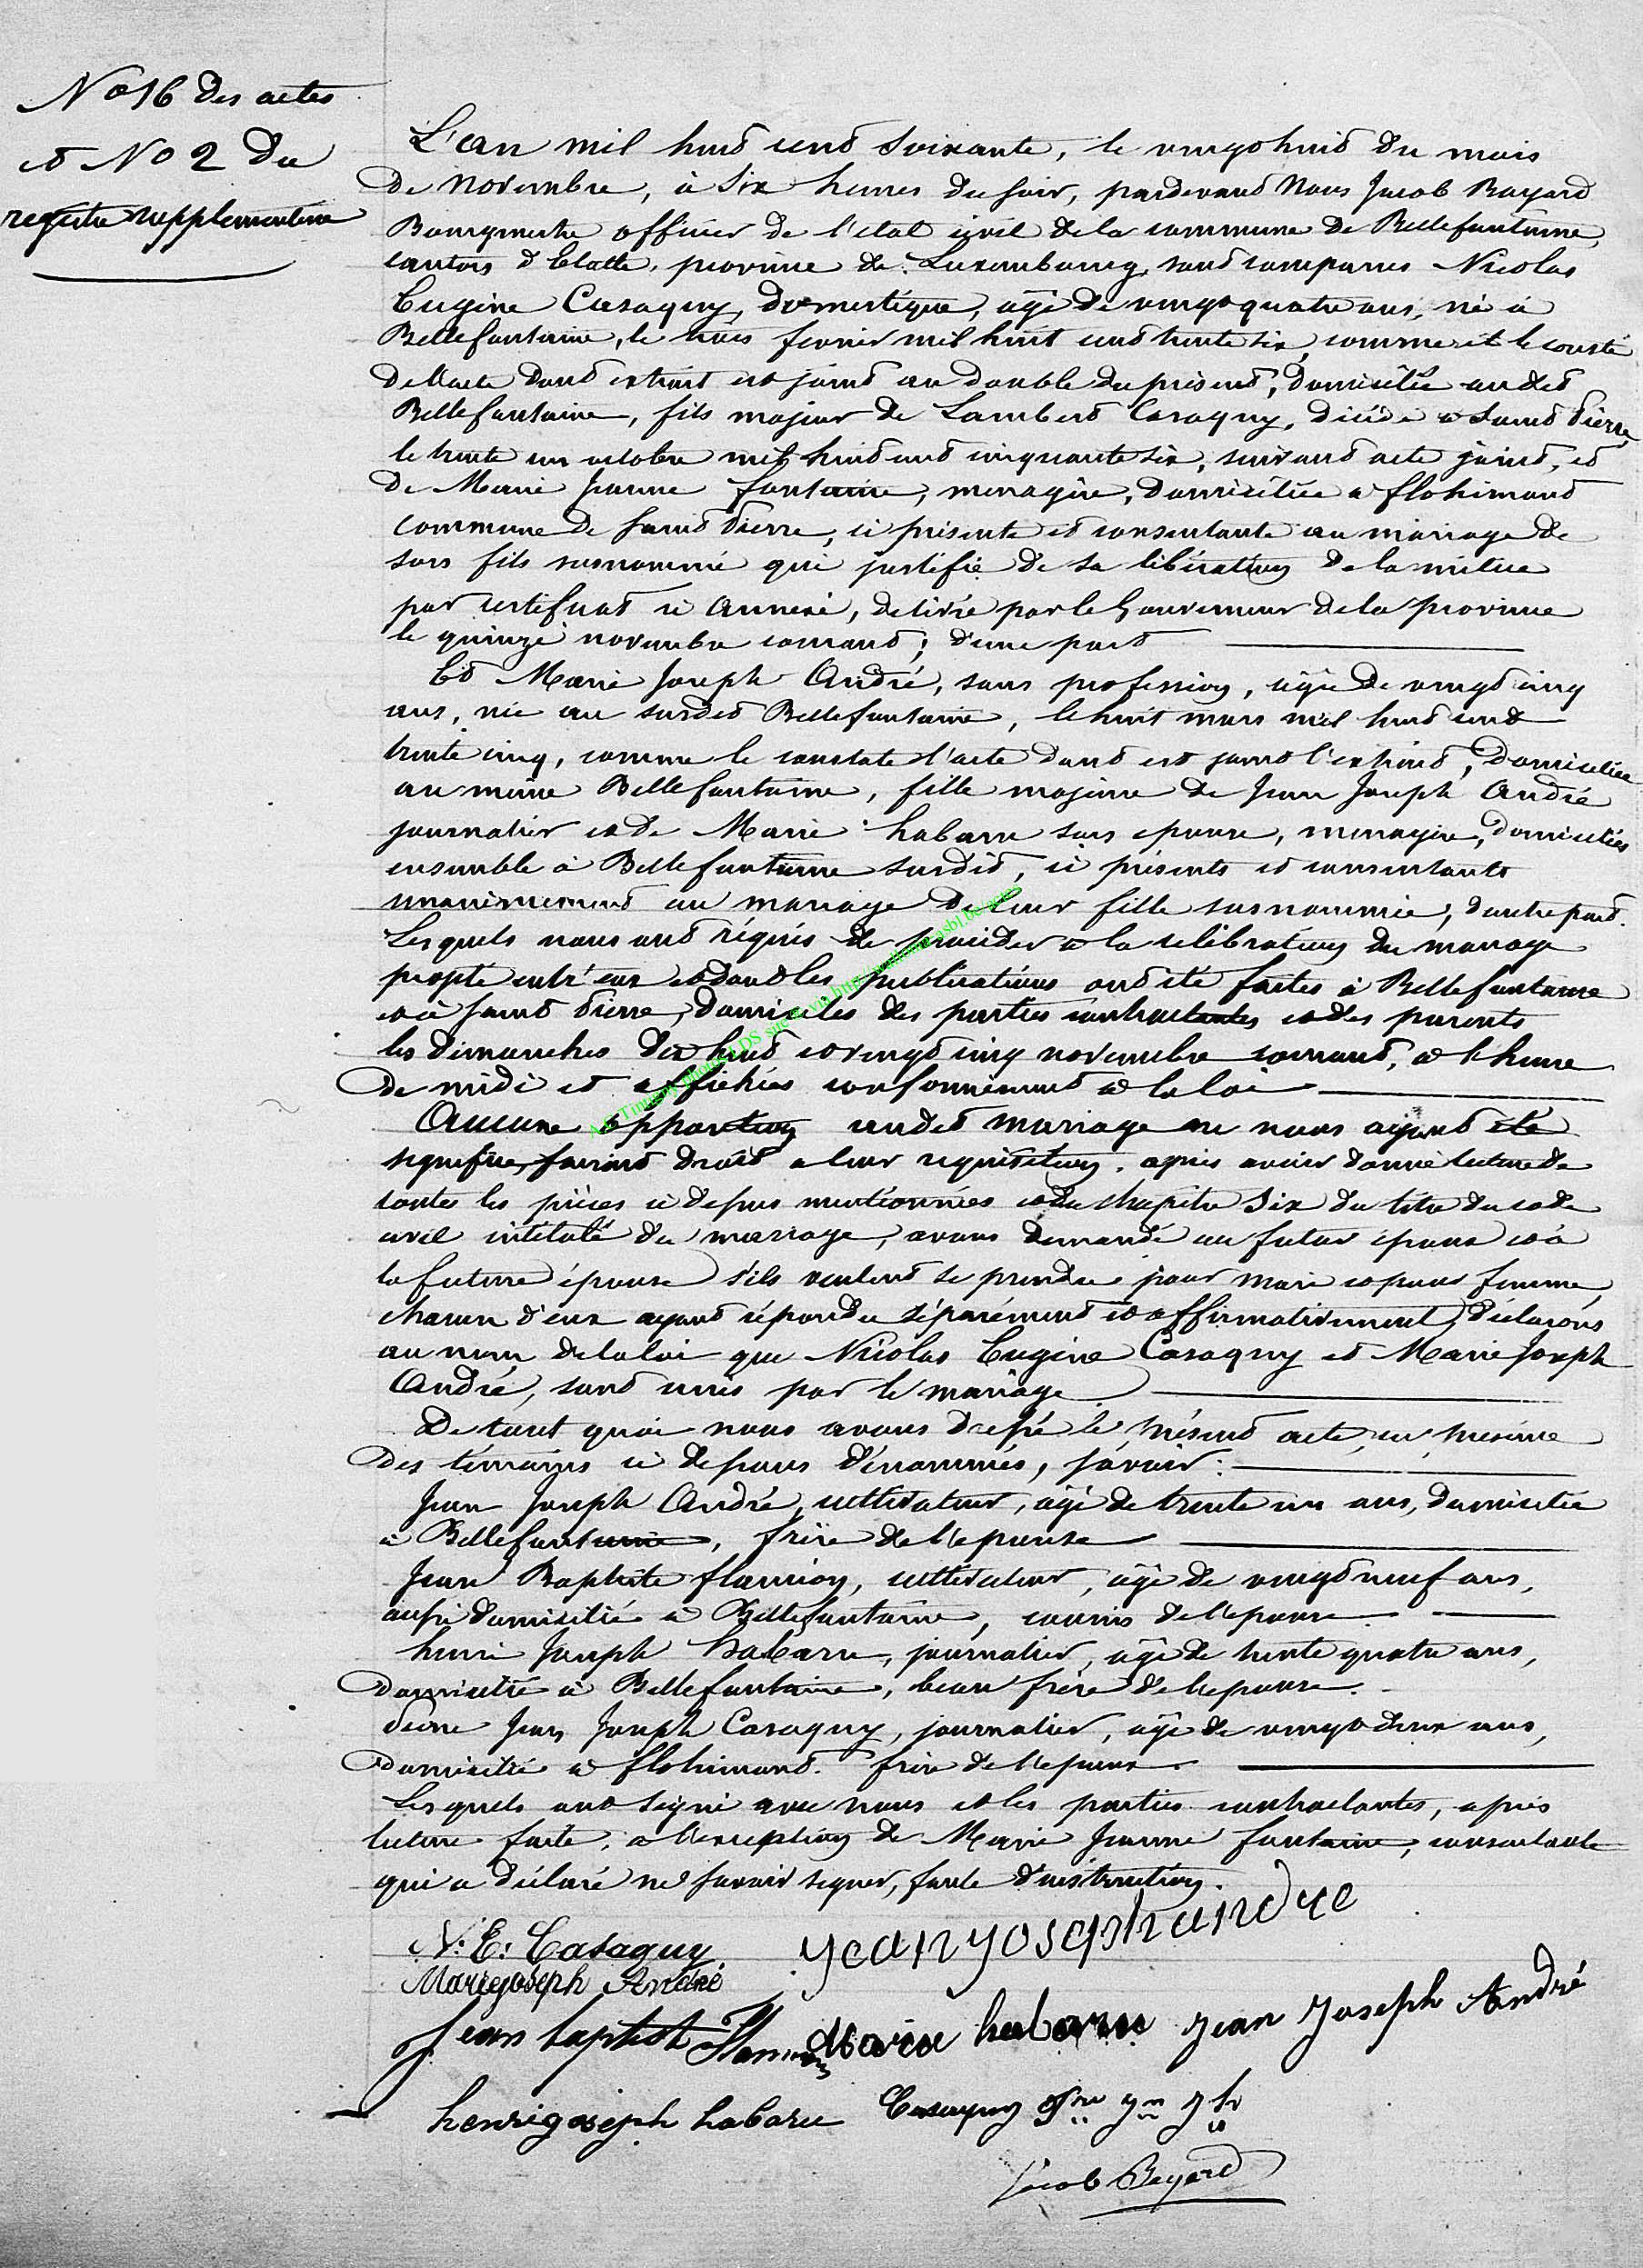 No 16 des actes
et No 2 du
registre supplementaire
L'an mil huit cent soixante, le vingt huit du mois
de novembre, à six heures du soir, pardevant Nous Jacob Bayard
Bourgmestre officier de l'etat civil de la commune de Bellefontaine,
canton d'Etalle, province de Luxembourg, sont comparus Nicolas
Eugène Casaquy, domestique, âgé de vingt quatre ans, né à
Bellefontaine, le trois fevrier mil huit cent trente six, comme il le conste
de l'acte dont extrait est joint au double du présent, domicilié audit
Bellefontaine, fils majeur de Lambert Casaquy, décédé à Saint Pierre,
le trente un octobre mil huit cent cinquante six, suivant acte joint, et
de Marie Jeanne fontaine, menagère, domiciliée à flohimont
commune de Saint Pierre, ci présente et consentante au mariage de
son fils susnommé qui justifie de sa libération de la milice
par certificat ci annexé, delivré par le Gouverneur de la province
le quinze novembre courant; d'une part
Et Marie Joseph André, sans profession, âgée de vingt cinq
ans, née au susdit Bellefontaine, le huit mars mil huit cent
trente cinq, comme le constate l'acte dont est joint l'extrait, domiciliée
au même Bellefontaine, fille majeure de Jean Joseph André
journalier et de Marie habaru son epouse, menagère, domiciliés
ensemble à Bellefontaine susdit, ci présents et consentants
unanimement au mariage de leur fille susnommée, d'autre part.
Lesquels nous ont réquis de procéder à la célébration du mariage
projeté entr'eux et dont les publications ont été faites à Bellefontaine
et à Saint Pierre, domiciles des parties contractantes et des parents
les dimanches dix huit et vingt cinq novembre courant, à l'heure
de midi et affichées conformément à la loi
Aucune opposition audit mariage ne nous ayant été
signifiée, faisant droit à leur requisition, après avoir donné lecture de
toutes les pièces ci dessus mentionnées et du chapitre six du titre du code
civil intitulé du mariage, avons demandé au futur époux et à
la future épouse s'ils veulent se prendre pour mari et pour femme,
chacun d'eux ayant répondu séparément et affirmativement, déclarons
au nom de la loi que Nicolas Eugène Casaquy et Marie Joseph
André, sont unis par le mariage
De tout quoi nous avons dressé le présent acte, en présence
des témoins ci dessous dénommés, savoir:
Jean Joseph André, cultivateur, âgé de trente un ans, domicilié
à Bellefontaine, frère de l'epouse
Jean Baptiste flamion, cultivateur, âgé de vingt neuf ans,
aussi domicilié à Bellefontaine, cousin de l'epouse
henri Joseph habaru, journalier, âgé de trente quatre ans,
domicilié à Bellefontaine, beau frère de l'epouse.
Pierre Jean Joseph Casaquy, journalier, âgé de vingt deux ans,
domicilié à flohimont. frère de l'epoux.
Lesquels ont signé avec nous et les parties contractantes, après
lecture faite, à l'exception de Marie Jeanne fontaine, consentante
qui a déclaré ne savoir signer, faute d'instruction.
N. E. Casaquy
yeanyosephandré
Marie joseph André
Jean baptist Flamion
Maria habaru
Jean Joseph André
henrigoseph habaru
Casaquy Pre Jn Jh
Jacob Bayard